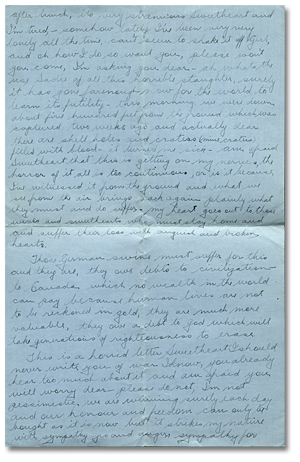 after lunch, it's very strenuous Sweetheart and
I'm tired - somehow lately I've been very very
lonely all the time, can't seem to shake it off Girl
and oh how I do so want you, please won't
you come, I'm asking you dear - My mate, the
war Sadee of all this horrible slaughter, surely
it has gone far enough now for the world, to
learn its futility - this morning we were down
about five hundred feet from the ground which was
captured two weeks ago and actually dear
there are shell holes and craters (mine craters)
filled with blood it turned me sick - am afraid
Sweetheart that this is getting on my nerves, the
horror of it all is too continuous, or is it because
I've witnessed it from the ground and what we
see from the air brings back again plainly what
they must and do suffer, my heart goes out to those
wives and sweethearts who must stay home and
and suffer their loss with anguish and broken
hearts.
Those German swines must suffer for this
and they are, they owe debts to civilization
to Canada which no wealth in the world
can pay because human lives are not
to be reckoned in gold, they are much more
valuable, they owe a debt to God which will
take generations of righteousness to erase
This is a horrid letter Sweetheart I should
never write you of war I know, you already
hear too much about it and am afraid you
will worry dear please do not, I'm not
pessimistic we are winning surely each day
and our honour and freedom can only be
bought as it is now but it strikes my nature
with sympathy and anger sympathy for